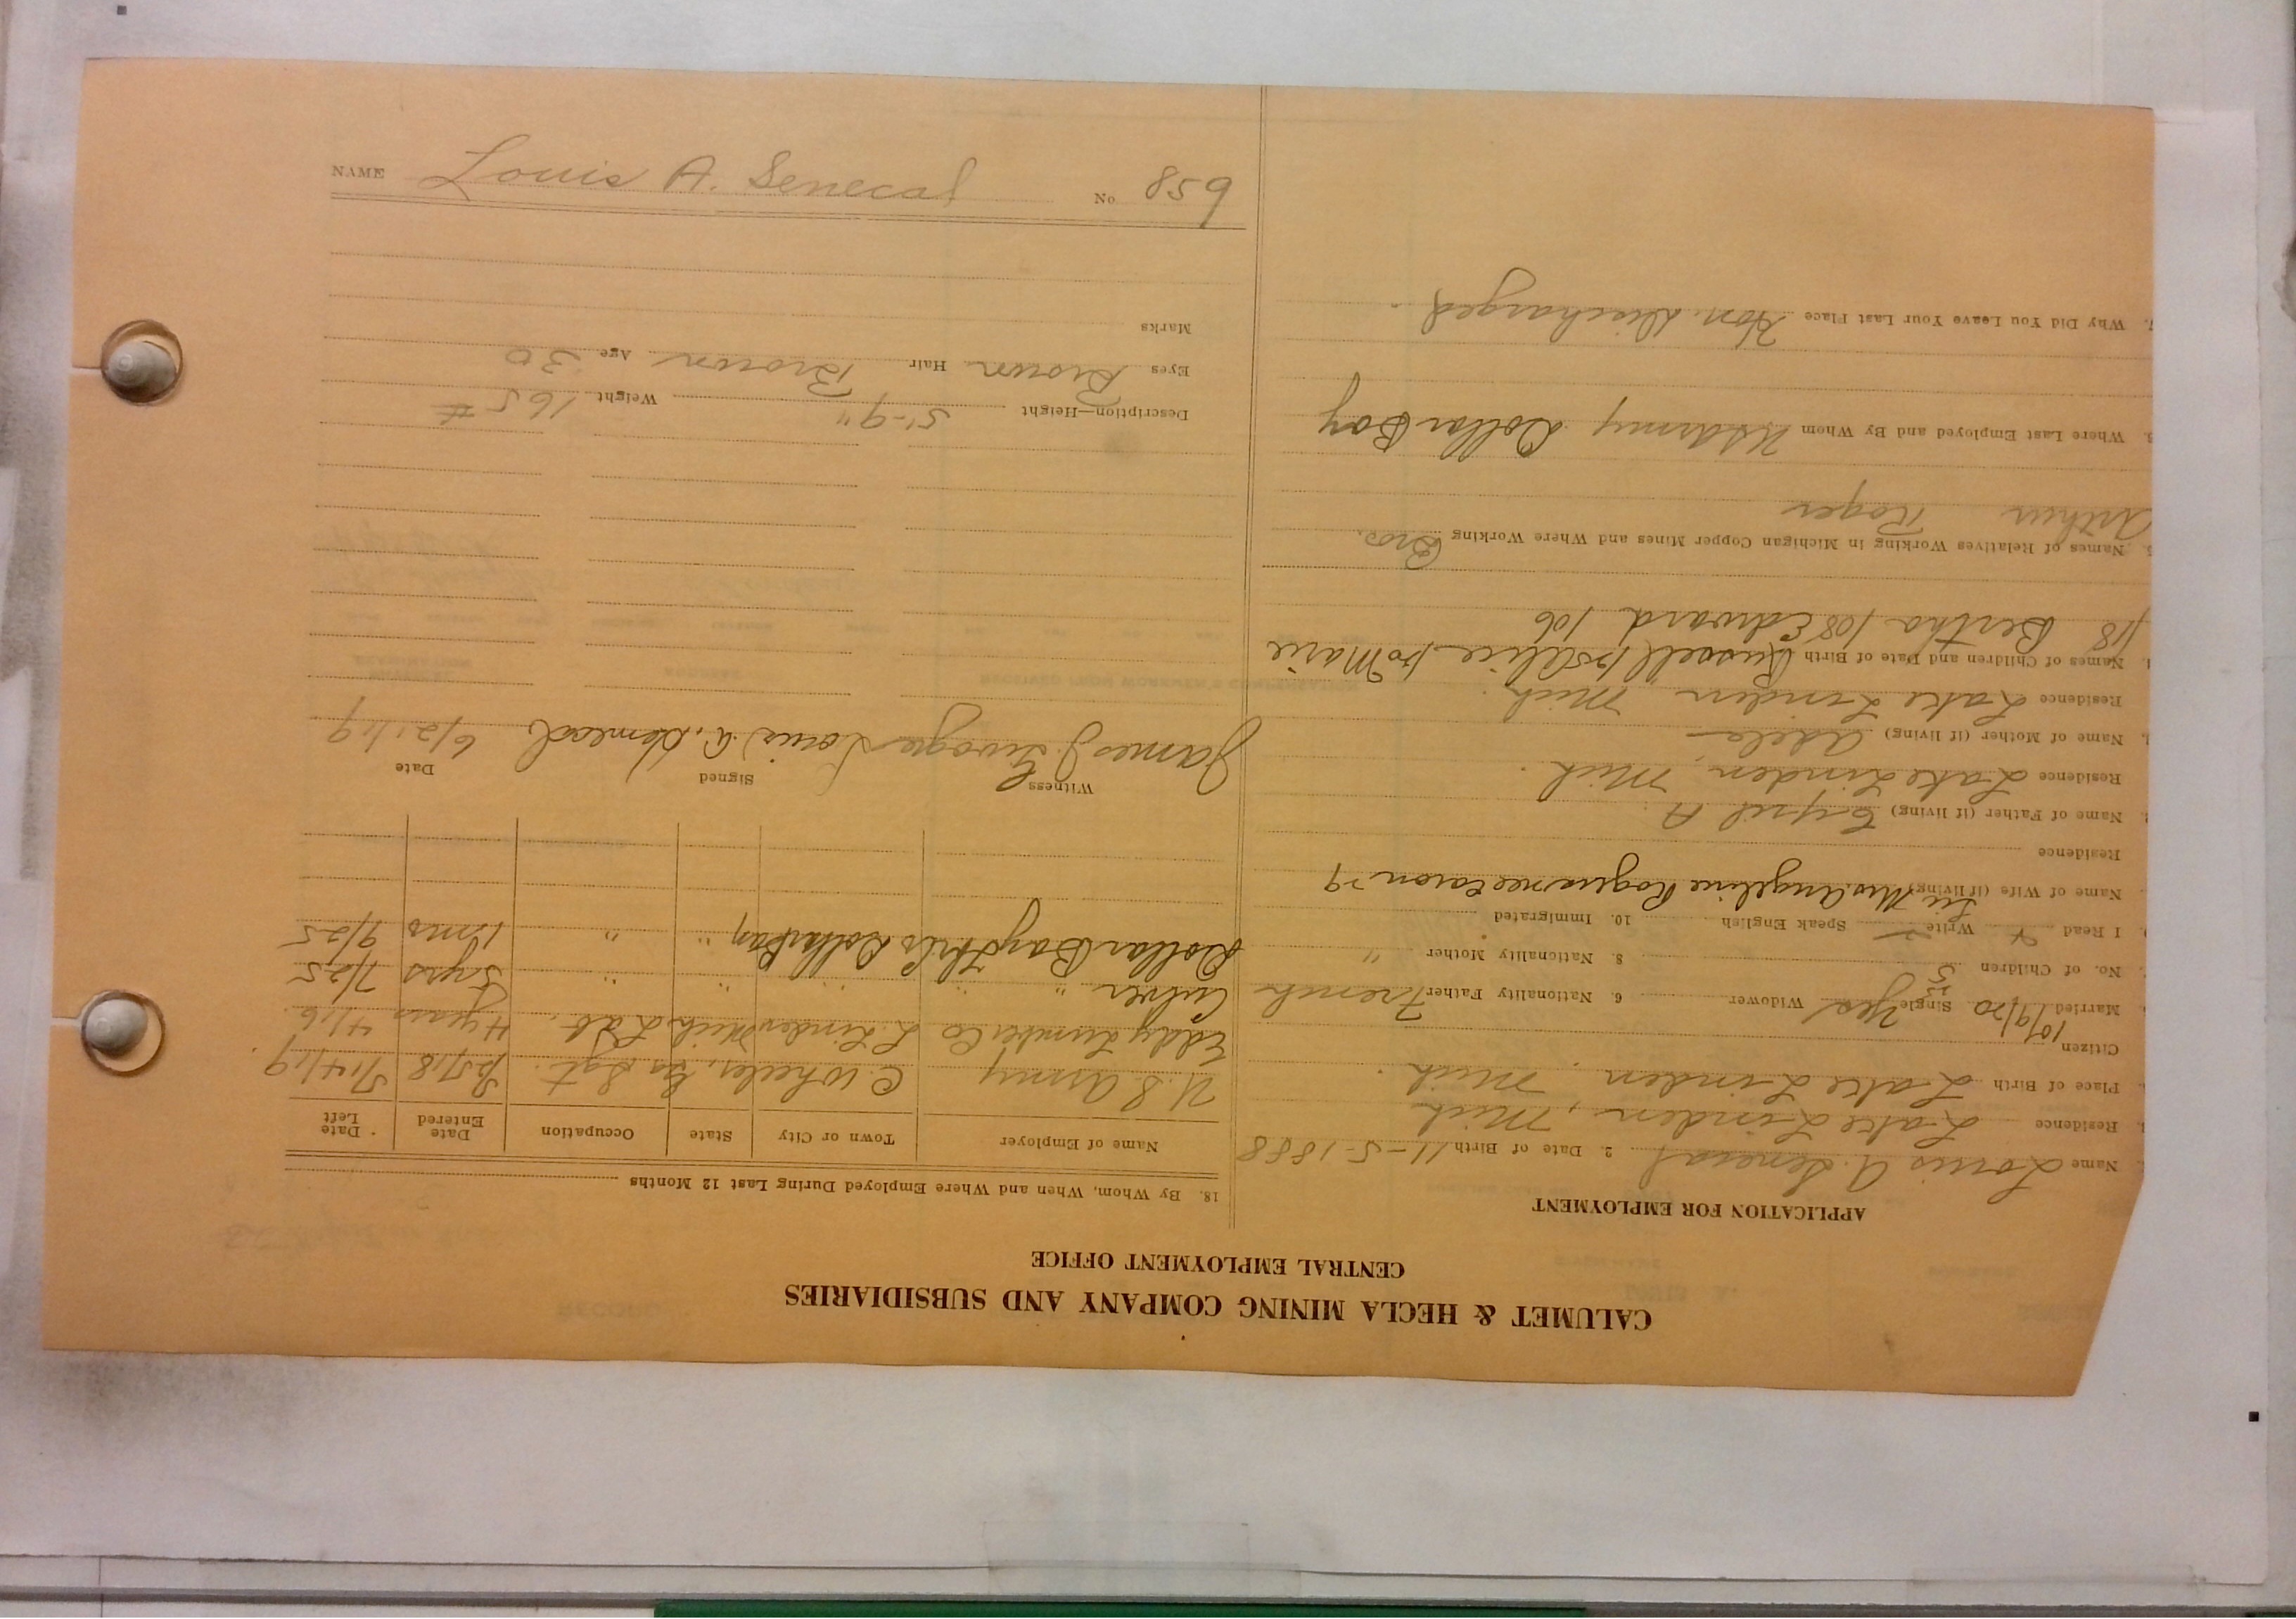 CALUMET & HECLA MINING COMPANY AND SUBSIDIARIES
CENTRAL EMPLOYMENT OFFICE
APPLICATION FOR EMPLOYMENT
Name Louis A. Senecal 2. Date of Birth 11-5-1888
Residence Lake Linden, Mich
Place of Birth Lake Linden, Mich.
Citizen
Married 10/9/20 Single Yes Widower 6. Nationality Father French
No. of Children 5 8. Nationality Mother "
I Read Write Speak English 10. Immigrated
Name of Wife (if living) Mrs Angeline
Residence
Name of Father (if living) Cyril A.
Residence Lake Linden, Mich.
Name of Mother (if living) Adela
Residence Lake Linden Mich.
Names of Children and Date of Birth Russell Alice Marie
118 Bertha 108 Edward 106
Names of Relatives Working in Michigan Copper Mines and Where Working Bros.
Arthur Roger
Where Last Employed and By Whom US Army Dollar Bay
7. Why Did You Leave Your Last Place Hon. Discharged.
18. By Whom, When and Where Employed During Last 12 Months
Name of Employer Town or City State Occupation Date Entered Date Left
U.S. Army C. Wheeler, Ga Sgt. 7/14/19
Eddy Lumber Co L. Linden Mich Lab. 4 years 4/16.
Culver " " " " 5 yrs 7/25
Dollar Bay Dollar Bay " " 1 mo 9/25
Witness Signed Date
James J. Louis A. Senecal 6/21/19
Description—Height 5'-9" Weight 165 #
Eyes Brown Hair Brown Age 30
Marks
NAME Louis A. Senecal No. 859